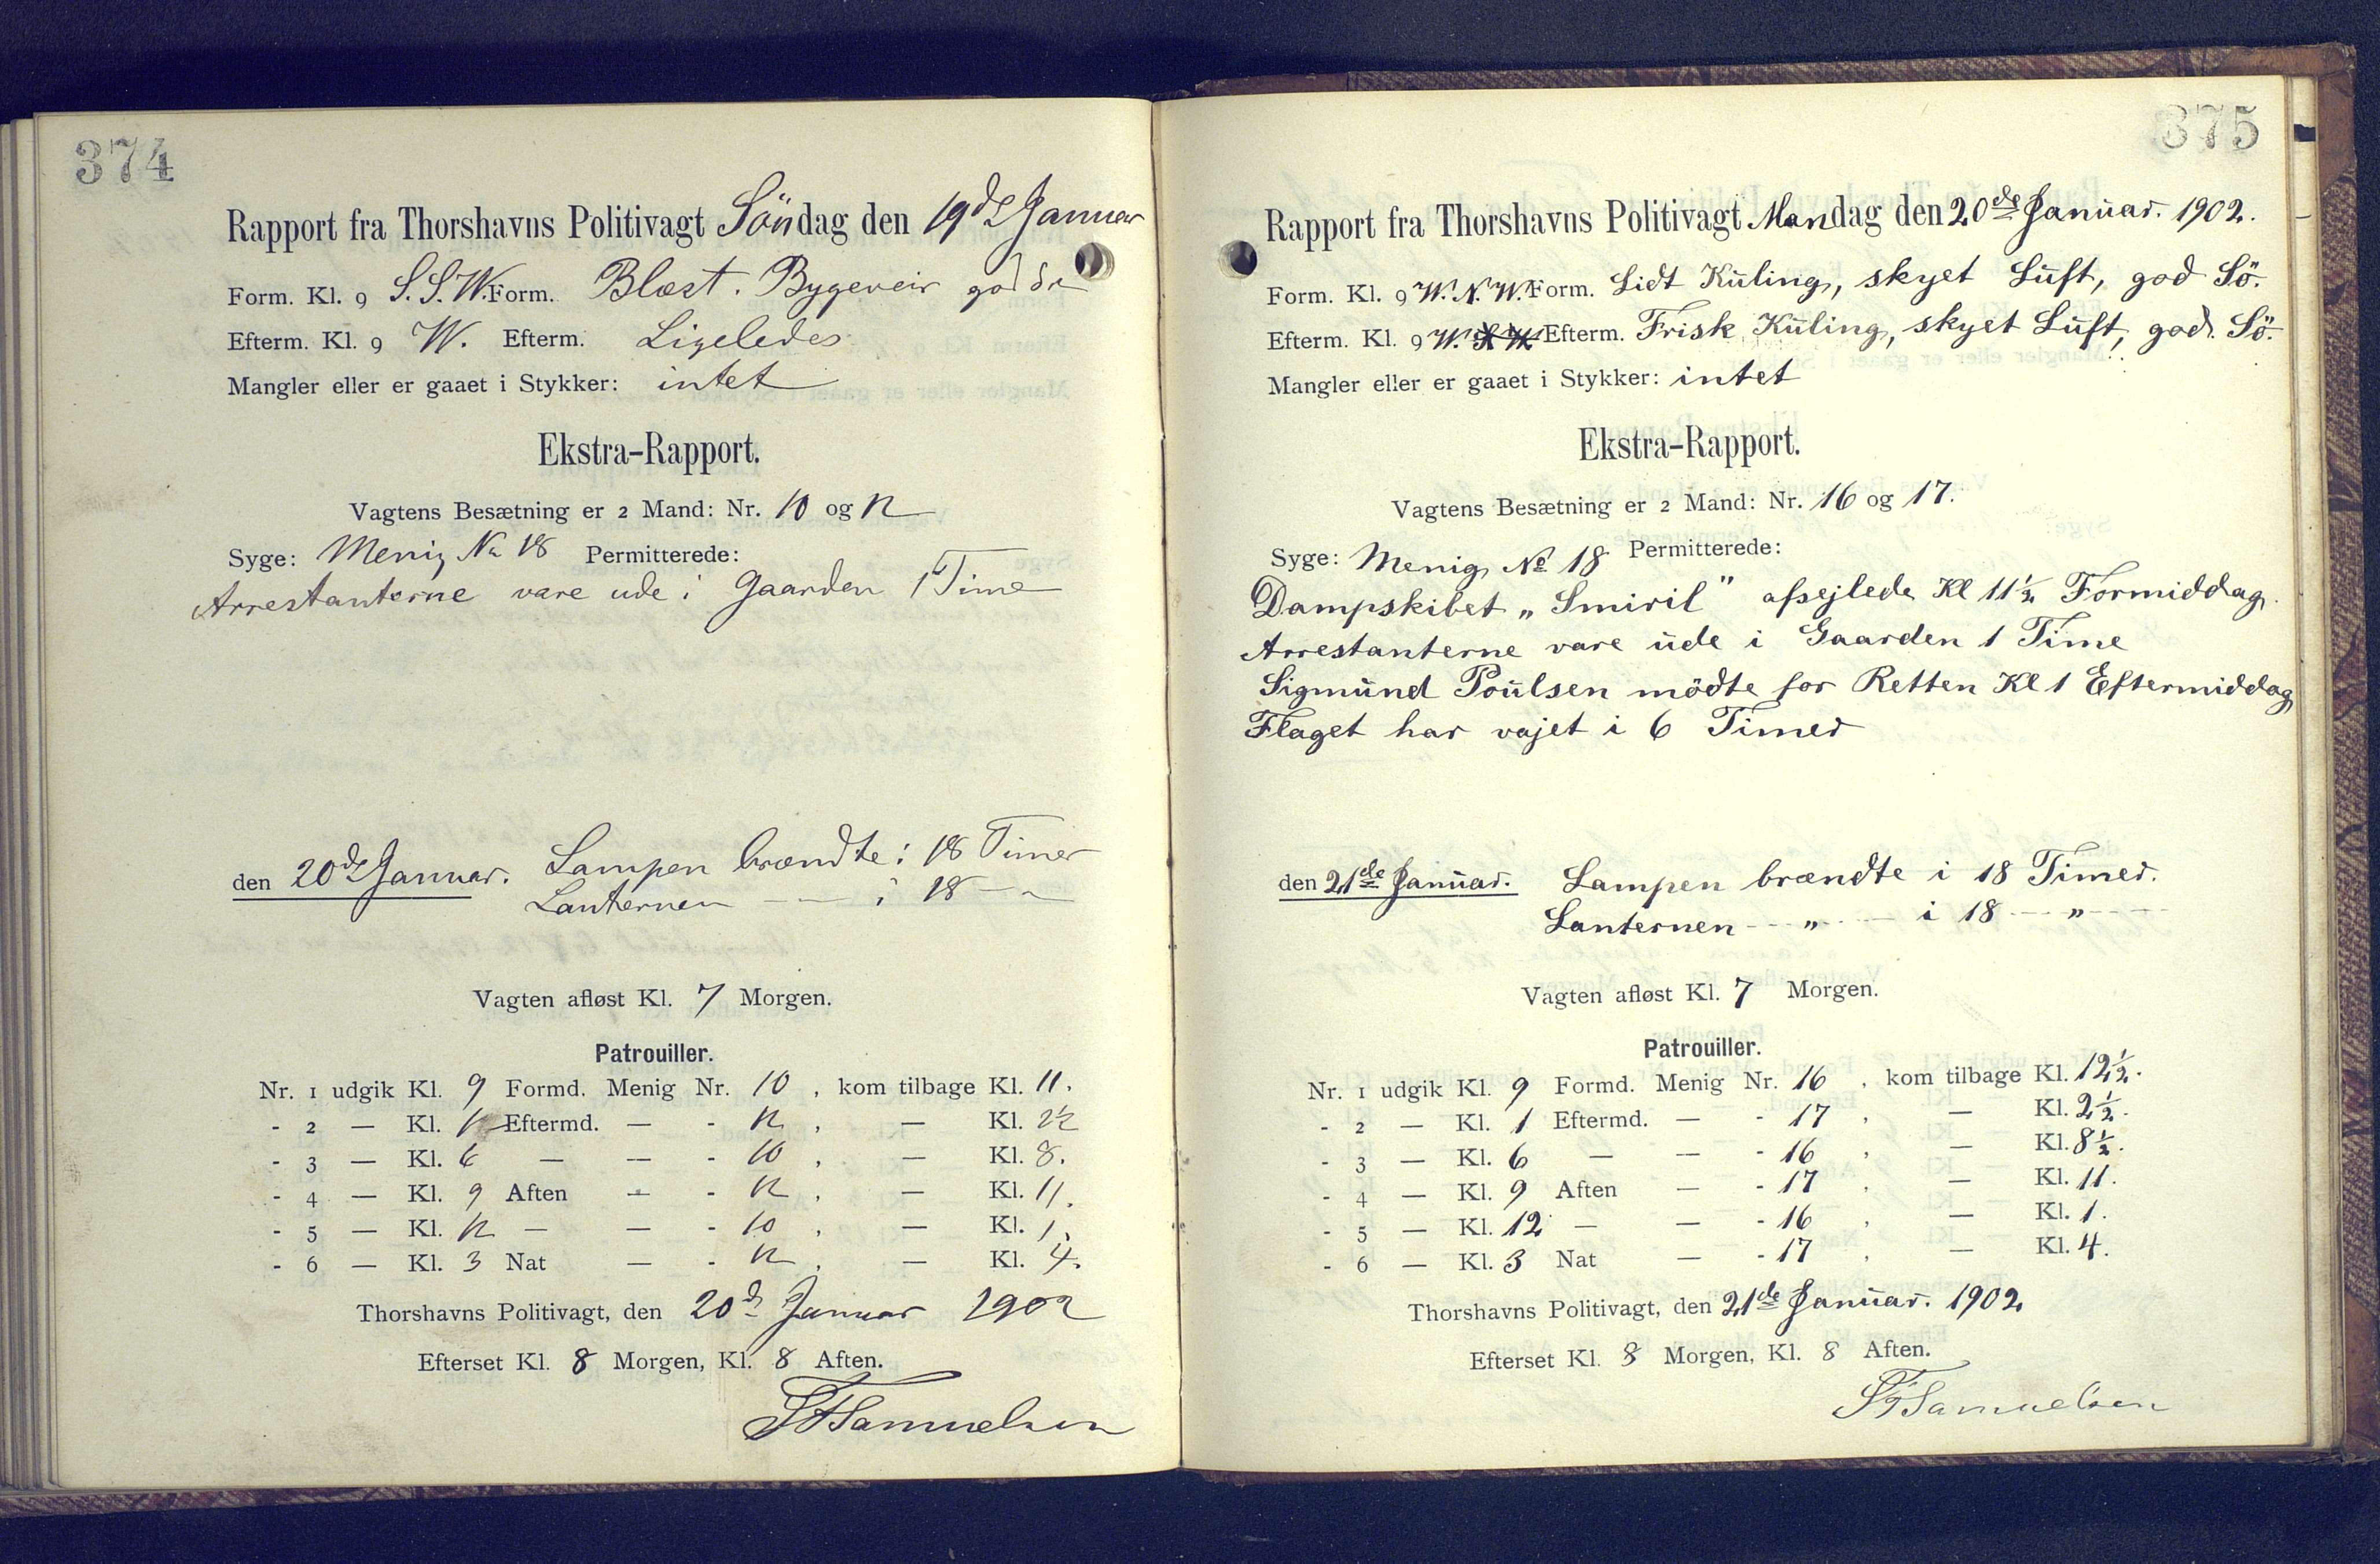 374
Rapport fra Thorshavns Politivagt Söndag den 19de Januar
Form. Kl. 9 S.S.W. Form. Blæst. Bygeveir god Sö
Efterm. Kl. 9 W. Efterm. Ligeledes
Mangler eller er gaaet i Stykker: intet
Ekstra-Rapport.
Vagtens Besætning er 2 Mand: Nr. 10 og 12
Syge: Menig No 18 Permitterede:
Arrestanterne vare ude i Gaarden 1 Time
den 20de Januar. Lampen brændte i 18 Timer
Lanternen — i 18 — "
Vagten afløst Kl. 7 Morgen.
Patrouiller.
Nr. 1 udgik Kl. 9 Formd. Menig Nr. 10, kom tilbage Kl. 11.
- 2 — Kl. 1 Eftermd. — - 12, — Kl. 2½
- 3 — Kl. 6 — — - 10, — Kl. 8.
- 4 — Kl. 9 Aften — - 12, — Kl. 11.
- 5 — Kl. 12 — — - 10, — Kl. 1.
- 6 — Kl. 3 Nat — - 12, — Kl. 4.
Thorshavns Politivagt, den 20de Januar 1902
Efterset Kl. 8 Morgen, Kl. 8 Aften.
Samuelsen
375
Rapport fra Thorshavns Politivagt Mandag den 20de Januar. 1902.
Form. Kl. 9 W.N.W. Form. Lidt Kuling, skyet Luft, god Sö.
Efterm. Kl. 9 W. Efterm. Frisk Kuling, skyet Luft, god. Sö.
Mangler eller er gaaet i Stykker: intet
Ekstra-Rapport.
Vagtens Besætning er 2 Mand: Nr. 16 og 17.
Syge: Menig No 18 Permitterede:
Dampskibet „Smiril" afsejlede Kl 11½ Formiddag.
Arrestanterne vare ude i Gaarden 1 Time
Sigmund Poulsen mödte for Retten Kl 1 Eftermiddag
Flaget har vajet i 6 Timer
den 21de Januar. Lampen brændte i 18 Timer.
Lanternen — „ — i 18 — „ —
Vagten afløst Kl. 7 Morgen.
Patrouiller.
Nr. 1 udgik Kl. 9 Formd. Menig Nr. 16, kom tilbage Kl. 12½.
- 2 — Kl. 1 Eftermd. — - 17, — Kl. 2½.
- 3 — Kl. 6 — — - 16, — Kl. 8½.
- 4 — Kl. 9 Aften — - 17, — Kl. 11.
- 5 — Kl. 12 — — - 16, — Kl. 1.
- 6 — Kl. 3 Nat — - 17, — Kl. 4.
Thorshavns Politivagt, den 21de Januar. 1902
Efterset Kl. 8 Morgen, Kl. 8 Aften.
Samuelsen